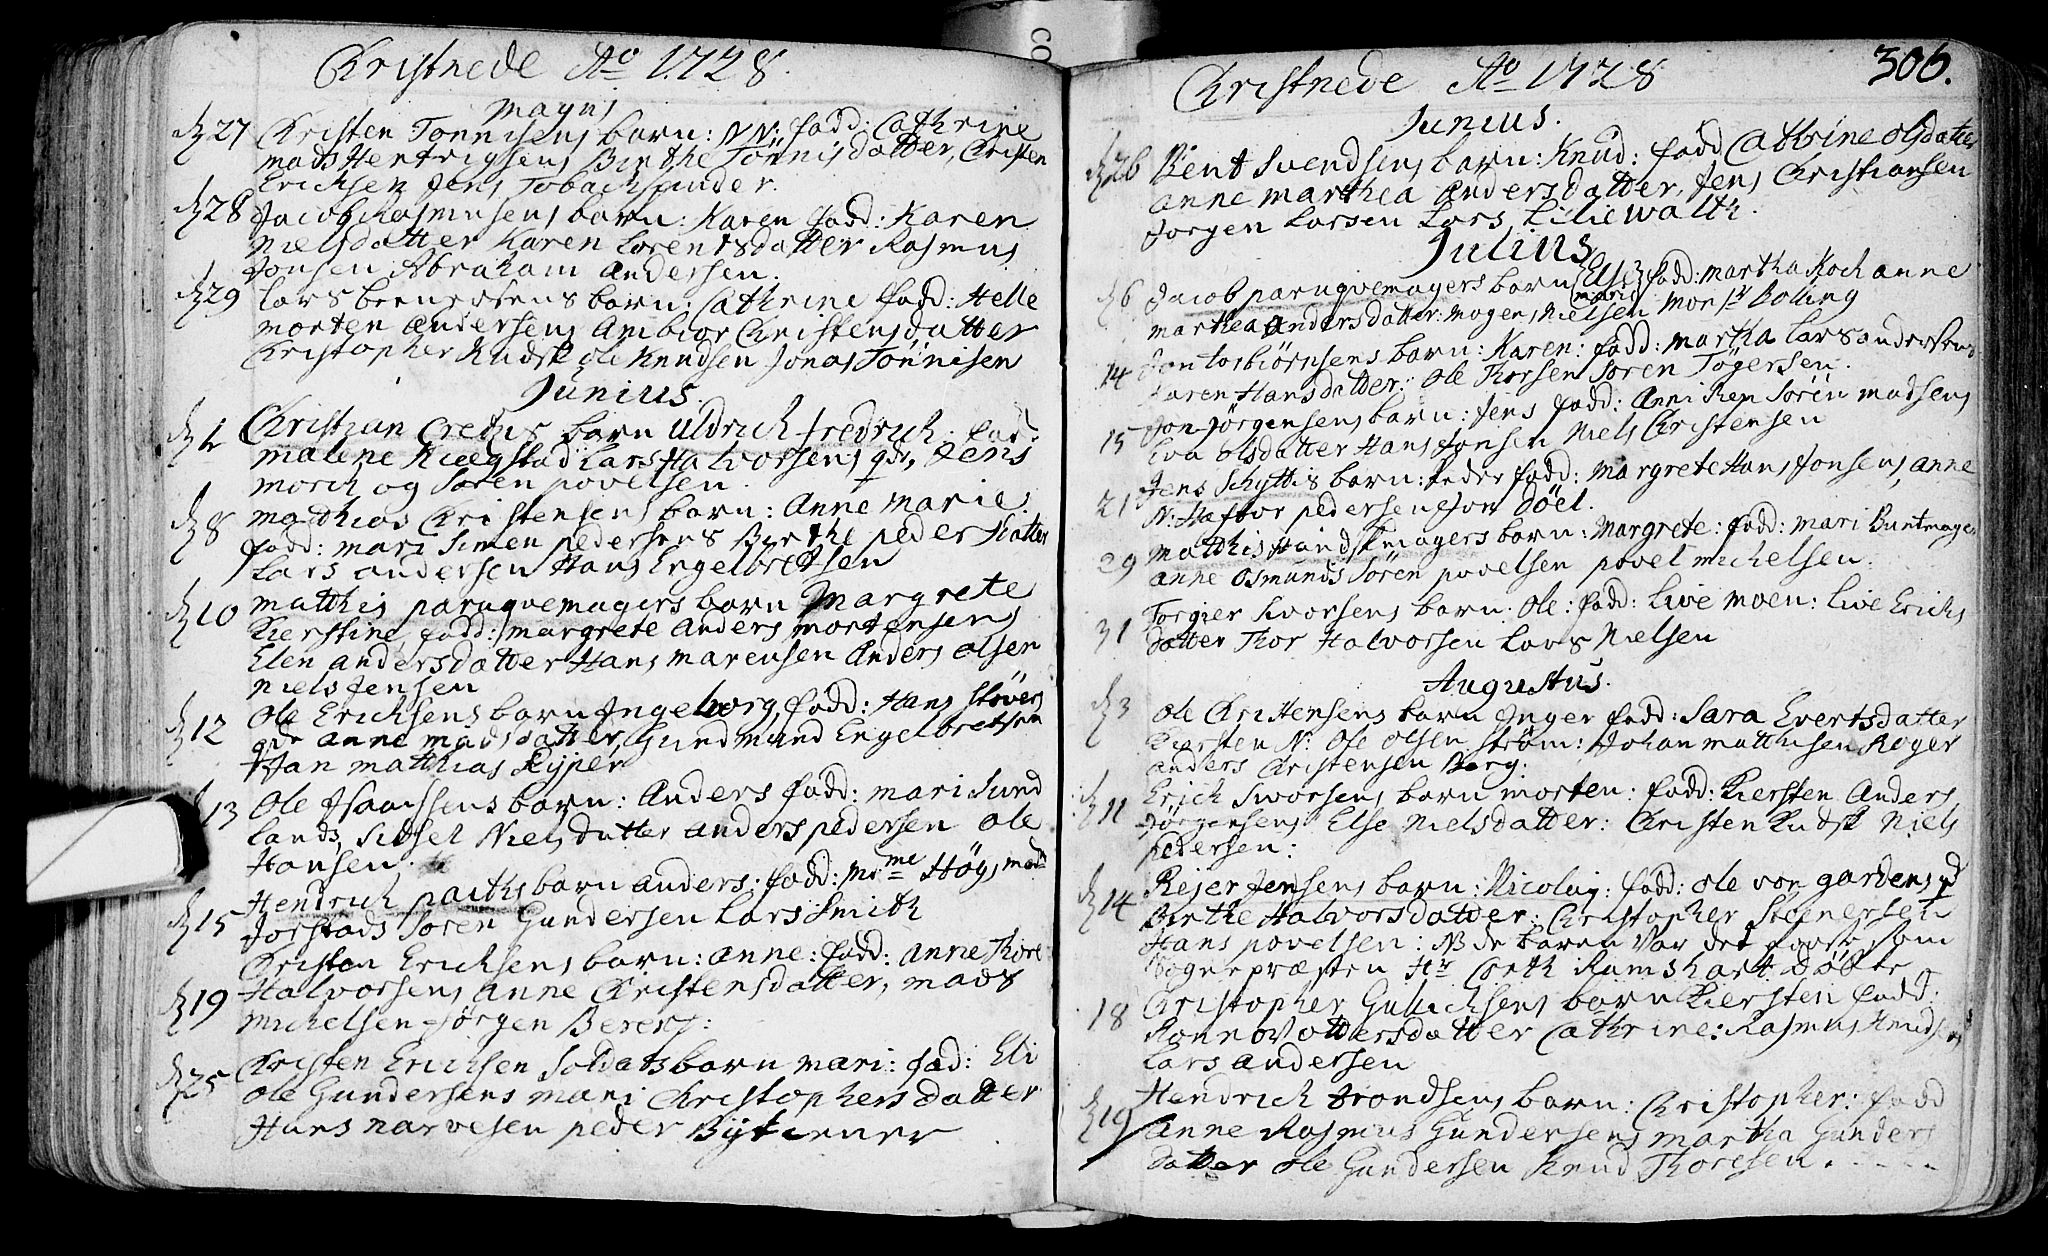 Christnede Ao 1728.
Mayus
D 27 Christen Tønnisens barn: NN: fadd: Cathrine
Mads Hentrigsens Birthe Tønnisdatter, Christen
Ericksen Jens Tobachspinder.
D 28 Jacob Rasmusens barn: Karen fadd: Karen
Nielsdatter Karen Lorentsdatter Rasmus
Jonsen Abraham Andersen.
D 29 Lars barn: Cathrine fadd: Helle
Morten Andersens Ambior Christensdatter
Christopher Rudsk Ole Knudsen Jonas Tønnisen
Junius.
D 1 Christian barn Uldrich fredrich. fad:
Malene Lars Halvorsens qde, Jens
Morch og Søren povelsen.
D 8 Matthias Christensens barn: Anne Marie:
fadd: Mari Simen pedersens Birthe peders datter
Lars andersen Hans Engelbretsen
D 10 Matthis paruqvemagers barn Margrete
Kierstine fadd: Margrete Anders Mortensens
Elen andersdatter Hans Marcusen Anders olsen
Niels Jensen
D 12 Ole Ericksens barn Ingeborg, fadd: Hans
qde Anne Madsdatter, Gundmund Engelbretsen
Jan Matthias Rijper
13 Ole Isaachsens barn: Anders fadd: Mari Sund
lands, Sidsel Niels datter anders pedersen Ole
Hansen.
D 15 Hendrich barn anders. fadd: Mme Høg, mad
Jorstads Søren Gundersen Lars Smith
D 19 Christen Ericksens barn: anne: fadd: Anne Thore
Halvorsens Anne Christensdatter, Mads
Michelsen Jørgen
D 25 Christen Ericksen Soldats barn Mari: fad: Eli
Ole Gundersens Mari Christophersdatter
Hans Narvesen peder Bytiener
Christnede Ao 1728
306.
Junius.
D 26 Bent Svendsens barn: Knud: fadd Cathrine olsdatter
Anne Marthea Andersdatter, Jens Christiansen
Jorgen Larsen Lars Liliewalth.
Julius
D 6 Jacob paruqvemagers barn Else fadd: Martha Koch anne
marie
Marthea Andersdatter: Mogens Nielsen Monsr Bolling
14 Jon Torbiørnsens barn: Karen: fadd: Martha Lars andersens
Karen Hansdatter: Ole Thorsen Søren Tøgersen.
15 Jon Jørgensens barn: Jens fadd: Anniken Søren Madsens
Eva olsdatter Hans Jonsen Niels Christensen
21 Jens Schyttis barn: Peder fadd: Margrete Hans Jonsens, anne
N: Hafvor pedersen Jon Döel.
29 Matthis Handskmagers barn: Margrete: fadd: Mari Buntmager
anne Osmunds Søren povelsen povel Michelsen.
31 Torgier Sivorsens barn: Ole: fadd: Live Moen: Live Erichs
datter Thor Halvorsen Lars Nielsen
Augustus.
D 3 Ole Christensens barn Inger fadd: Sara Evertsdatter
Kiersten N: Ole olsen Strøm: Johan Matthisen Roger
Anders Christensen Berg.
D 11 Erich Sivorsens barn Morten: fadd: Kiersten Anders
Jørgensens Else Nielsdatter: Christen Rudsk Niels
pedersen:
D 14 Rejer Jensens barn: Nicolaj: fadd: Ole von gardens qd
Birthe Halvorsdatter: Christopher Steenersen
Hans povelsen: NB de baren var det første som
Sognepræsten Hr Corth Ramshart døbte
18 Christopher Gulichsens barn Kiersten fadd:
Ronnov ottersdatter Cathrine: Rasmus Knudsens
Lars Andersen
D 19 Hendrich trondsens barn: Christopher: fadd
Anne Rasmus Gundersens Martha Gunders
datter Ole Gundersen Knud Thoresen.